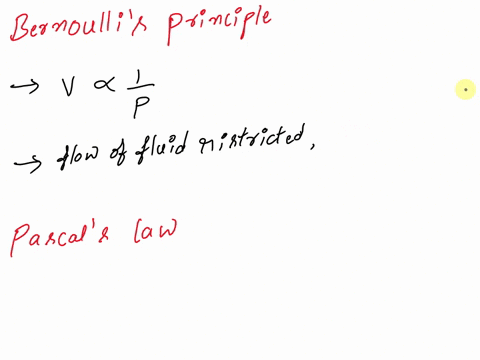 Bernoulli's principle
→ V ∝ 1/P
→ flow of fluid ristricted,
Pascal's law